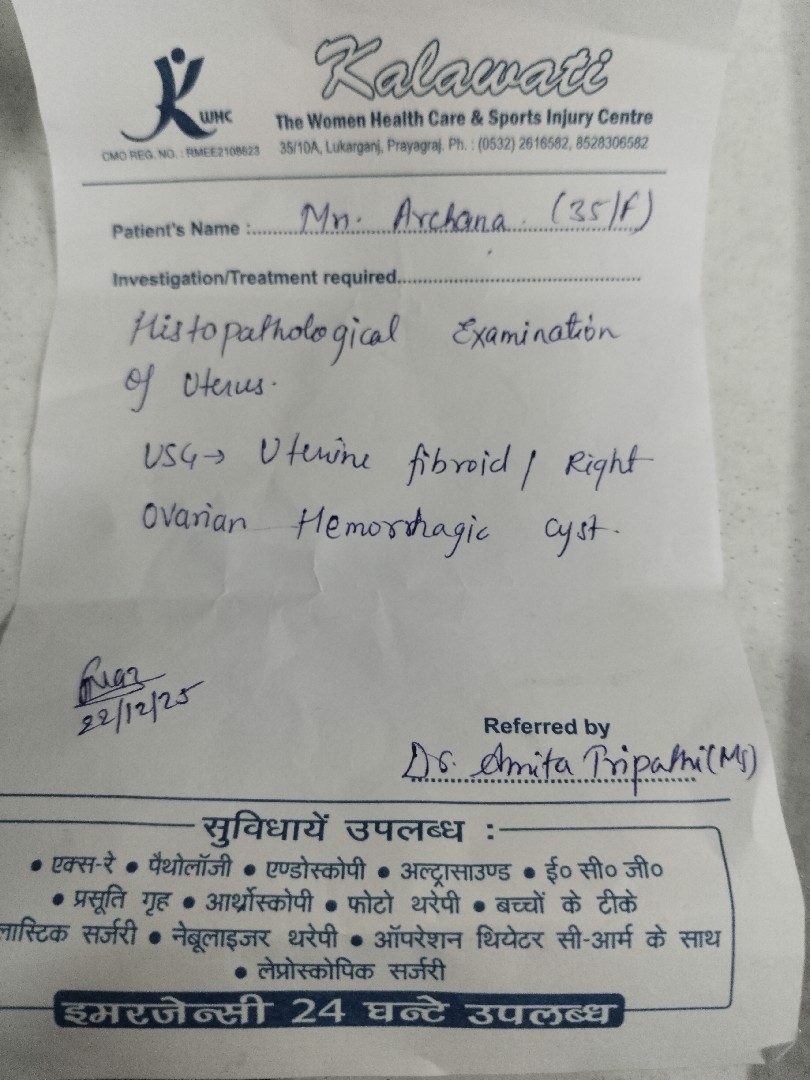 WHC
Kalawati
The Women Health Care & Sports Injury Centre
CMO REG. NO. : RMEE2108623
35/10A, Lukarganj, Prayagraj. Ph. : (0532) 2616582, 8528306582
Patient's Name :..... Mrs. Archana (35/F)
Investigation/Treatment required.....
Histopathological Examination
of Uterus.
USG → Uterine fibroid / Right
Ovarian Hemorrhagic cyst.
22/12/25
Referred by
Dr. Amita Tripathi (MS)
सुविधायें उपलब्ध :
• एक्स-रे • पैथोलॉजी • एण्डोस्कोपी • अल्ट्रासाउण्ड • ई० सी० जी०
• प्रसूति गृह • आर्थ्रोस्कोपी • फोटो थरेपी • बच्चों के टीके
लास्टिक सर्जरी • नेबूलाइजर थरेपी • ऑपरेशन थियेटर सी-आर्म के साथ
• लेप्रोस्कोपिक सर्जरी
इमरजेन्सी 24 घन्टे उपलब्ध